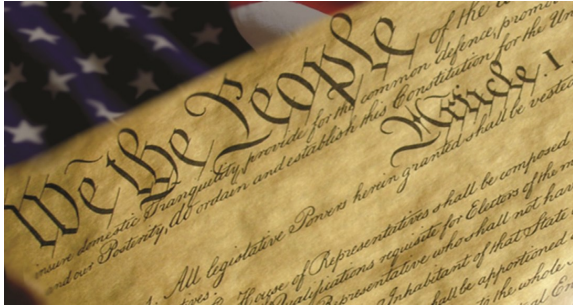 We the People of the
insure domestic Tranquility, provide for the common defence, promo
and our Posterity, do ordain and establish this Constitution for the Un
Article. I
All legislative Powers herein granted shall be vested
House of Representatives shall be composed
Qualifications requisite for Electors of the m
Representative who shall not hav
Inhabitant of that State
shall be apportioned
the whole